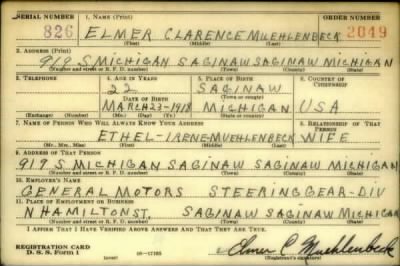 SERIAL NUMBER 1. NAME (Print) ORDER NUMBER
826 ELMER CLARENCE MUEHLENBECK 2049
(First) (Middle) (Last)
2. ADDRESS (Print)
919 S MICHIGAN SAGINAW SAGINAW MICHIGAN
(Number and street or R. F. D. number) (Town) (County) (State)
3. TELEPHONE 4. AGE IN YEARS 5. PLACE OF BIRTH 6. COUNTRY OF CITIZENSHIP
22 SAGINAW
DATE OF BIRTH (Town or county)
MARCH 23-1918 MICHIGAN USA
(Exchange) (Number) (Mo.) (Day) (Yr.) (State or country)
7. NAME OF PERSON WHO WILL ALWAYS KNOW YOUR ADDRESS 8. RELATIONSHIP OF THAT PERSON
ETHEL-IRENE MUEHLENBECK WIFE
(Mr., Mrs., Miss) (First) (Middle) (Last)
9. ADDRESS OF THAT PERSON
919 S MICHIGAN SAGINAW SAGINAW MICHIGAN
(Number and street or R. F. D. number) (Town) (County) (State)
10. EMPLOYER'S NAME
GENERAL MOTORS STEERING GEAR-DIV
11. PLACE OF EMPLOYMENT OR BUSINESS
N HAMILTON ST. SAGINAW SAGINAW MICHIGAN
(Number and street or R. F. D. number) (Town) (County) (State)
I AFFIRM THAT I HAVE VERIFIED ABOVE ANSWERS AND THAT THEY ARE TRUE.
REGISTRATION CARD
D. S. S. Form 1 (over) 16-17105 Elmer C Muehlenbeck
(Registrant's signature)